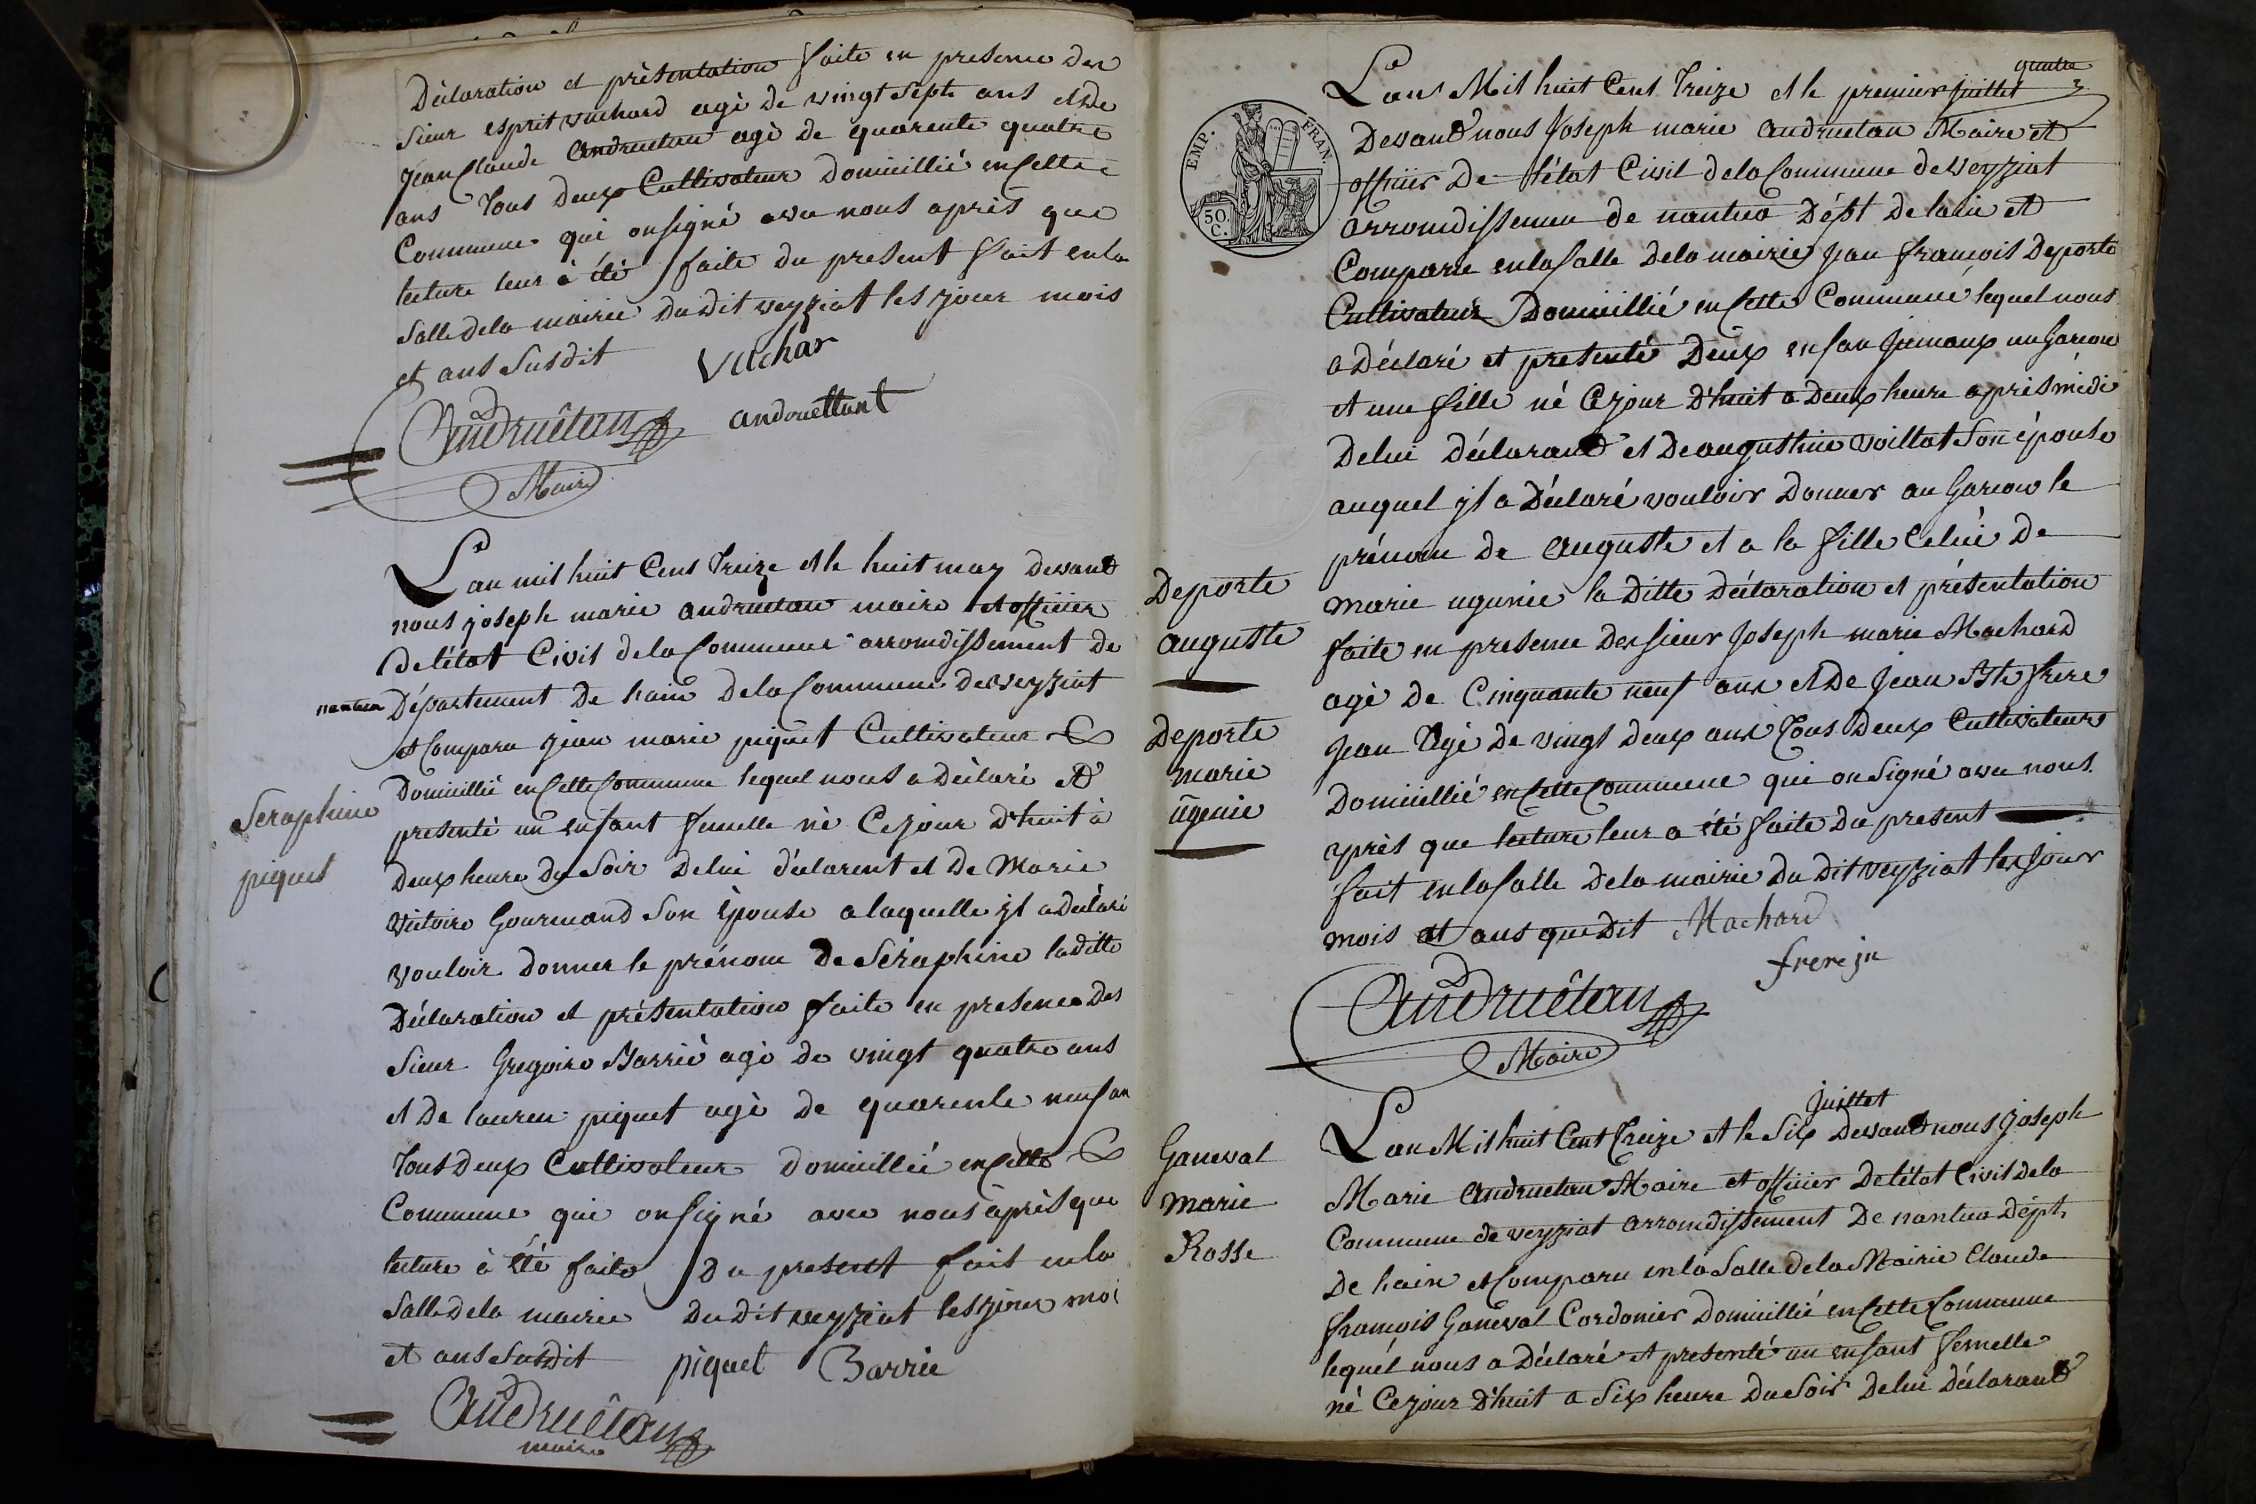 Déclaration et présentation faite en presence des
sieur esprit vuchard agé de vingt sept ans et de
jean Claude andruetan agé de quarente quatre
ans tous deux Cultivateur domicillié en Cette
Commune qui on signé avec nous après que
lecture leur à été faite du present fait en la
Salle de la mairie du dit veyziat les jour mois
et ans susdit
Vuchar
andouettant
Andruêtan
Maire
L'an mil huit Cens treize et le huit may devant
nous joseph marie andruetan maire et officier
de l'état Civil de la Commune arromdissement de
nantua Département de hain de la Commune de veyziat
et Comparu jean marie piquet Cultivateur
Domicillié en Cette Commune lequel nous a déclaré et
presenté un enfant femelle né Ce jour d'huit à
deux heure du soir de lui déclarent et de Marie
victoire Gourmand son épouse a laquelle yl a déclaré
vouloir donner le prénom de Séraphine la ditte
Seraphine
piquet
Déclaration et présentation faite en presence des
Sieur Gregoire Barrié agé de vingt quatre ans
et de lauren piquet agé de quarente neuf an
tous deux Cultivateur domicillié en Cette
Commune qui on signé avec nous après que
lecture à été faite du present fait en la
Salle de la mairie du dit veyziat les jour moi
et ans susdit
piquet
Barrie
Andruêtan
maire
quatre
EMP. FRAN.
50. C.
L'ans Mil huit Cens Treize et le premier juillet
Devant nous Joseph marie andruetan Maire et
officier De l'état Civil de la Commune de veyziat
arromdissemen de nantua Dépt de lain et
Comparu en la Salle de la mairie jean françois Deporte
Cultivateur Domicillié en Cette Commune lequel nous
a Déclaré et presenté Deux enfan jumaux un Garcon
et une fille né Ce jour d'huit a Deux heure après midi
De lui Déclarant et De augustine voillat Son épouse
auquel yl a Déclaré vouloir Donner au Garcon le
prénom de Auguste et a la fille Celui De
marie ugenie la Ditte Déclaration et présentation
Deporte
auguste
Deporte
marie
ugenie
faite en presence Des sieur Joseph marie Machard
agé de Cinquante neuf ans et De Jean Bte frere
jean Agé de vingt deux ans Tous Deux Cultivateur
Domicillié en Cette Commune qui on Signé avec nous
après que lecture leur a été faite Du present
fait en la Salle De la mairie Du Dit veyziat les jour
mois et ans que Dit
Machard
frere jn
Andruêtan
Maire
Ganeval
Marie
Rosse
juillet
L'an Mil huit Cent Treize et le Six Devant nous Joseph
Marie Andruetan Maire et officier De l'état Civil de la
Commune de veyziat arromdissement De nantua Dépt.
De hain et Comparu en la Salle de la Mairie Claude
françois Ganeval Cordonier Domicillié en Cette Commune
lequel nous a Déclaré et presenté un enfant femelle
né Ce jour D'huit a Six heure Du Soir De lui Déclarant